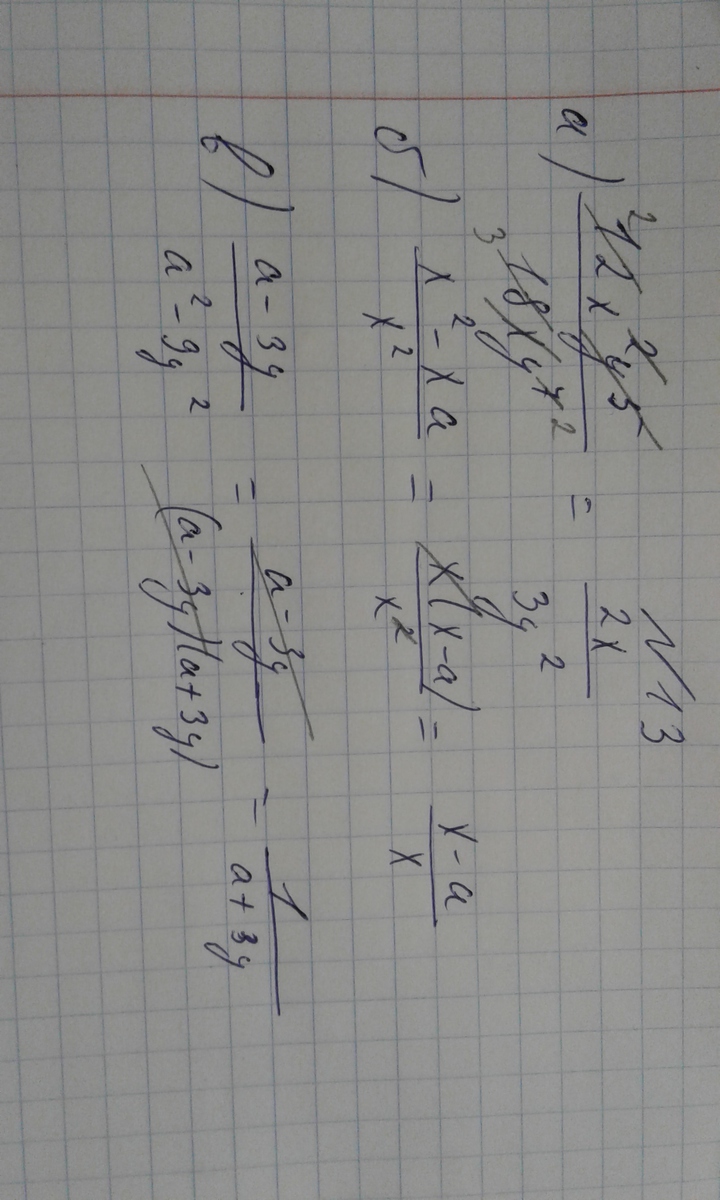 N 13
а) 12x²y⁵ / 18xy⁷ = 2x / 3y²
б) x² - xa / x² = x(x-a) / x² = x-a / x
в) a-3y / a²-9y² = a-3y / (a-3y)(a+3y) = 1 / a+3y